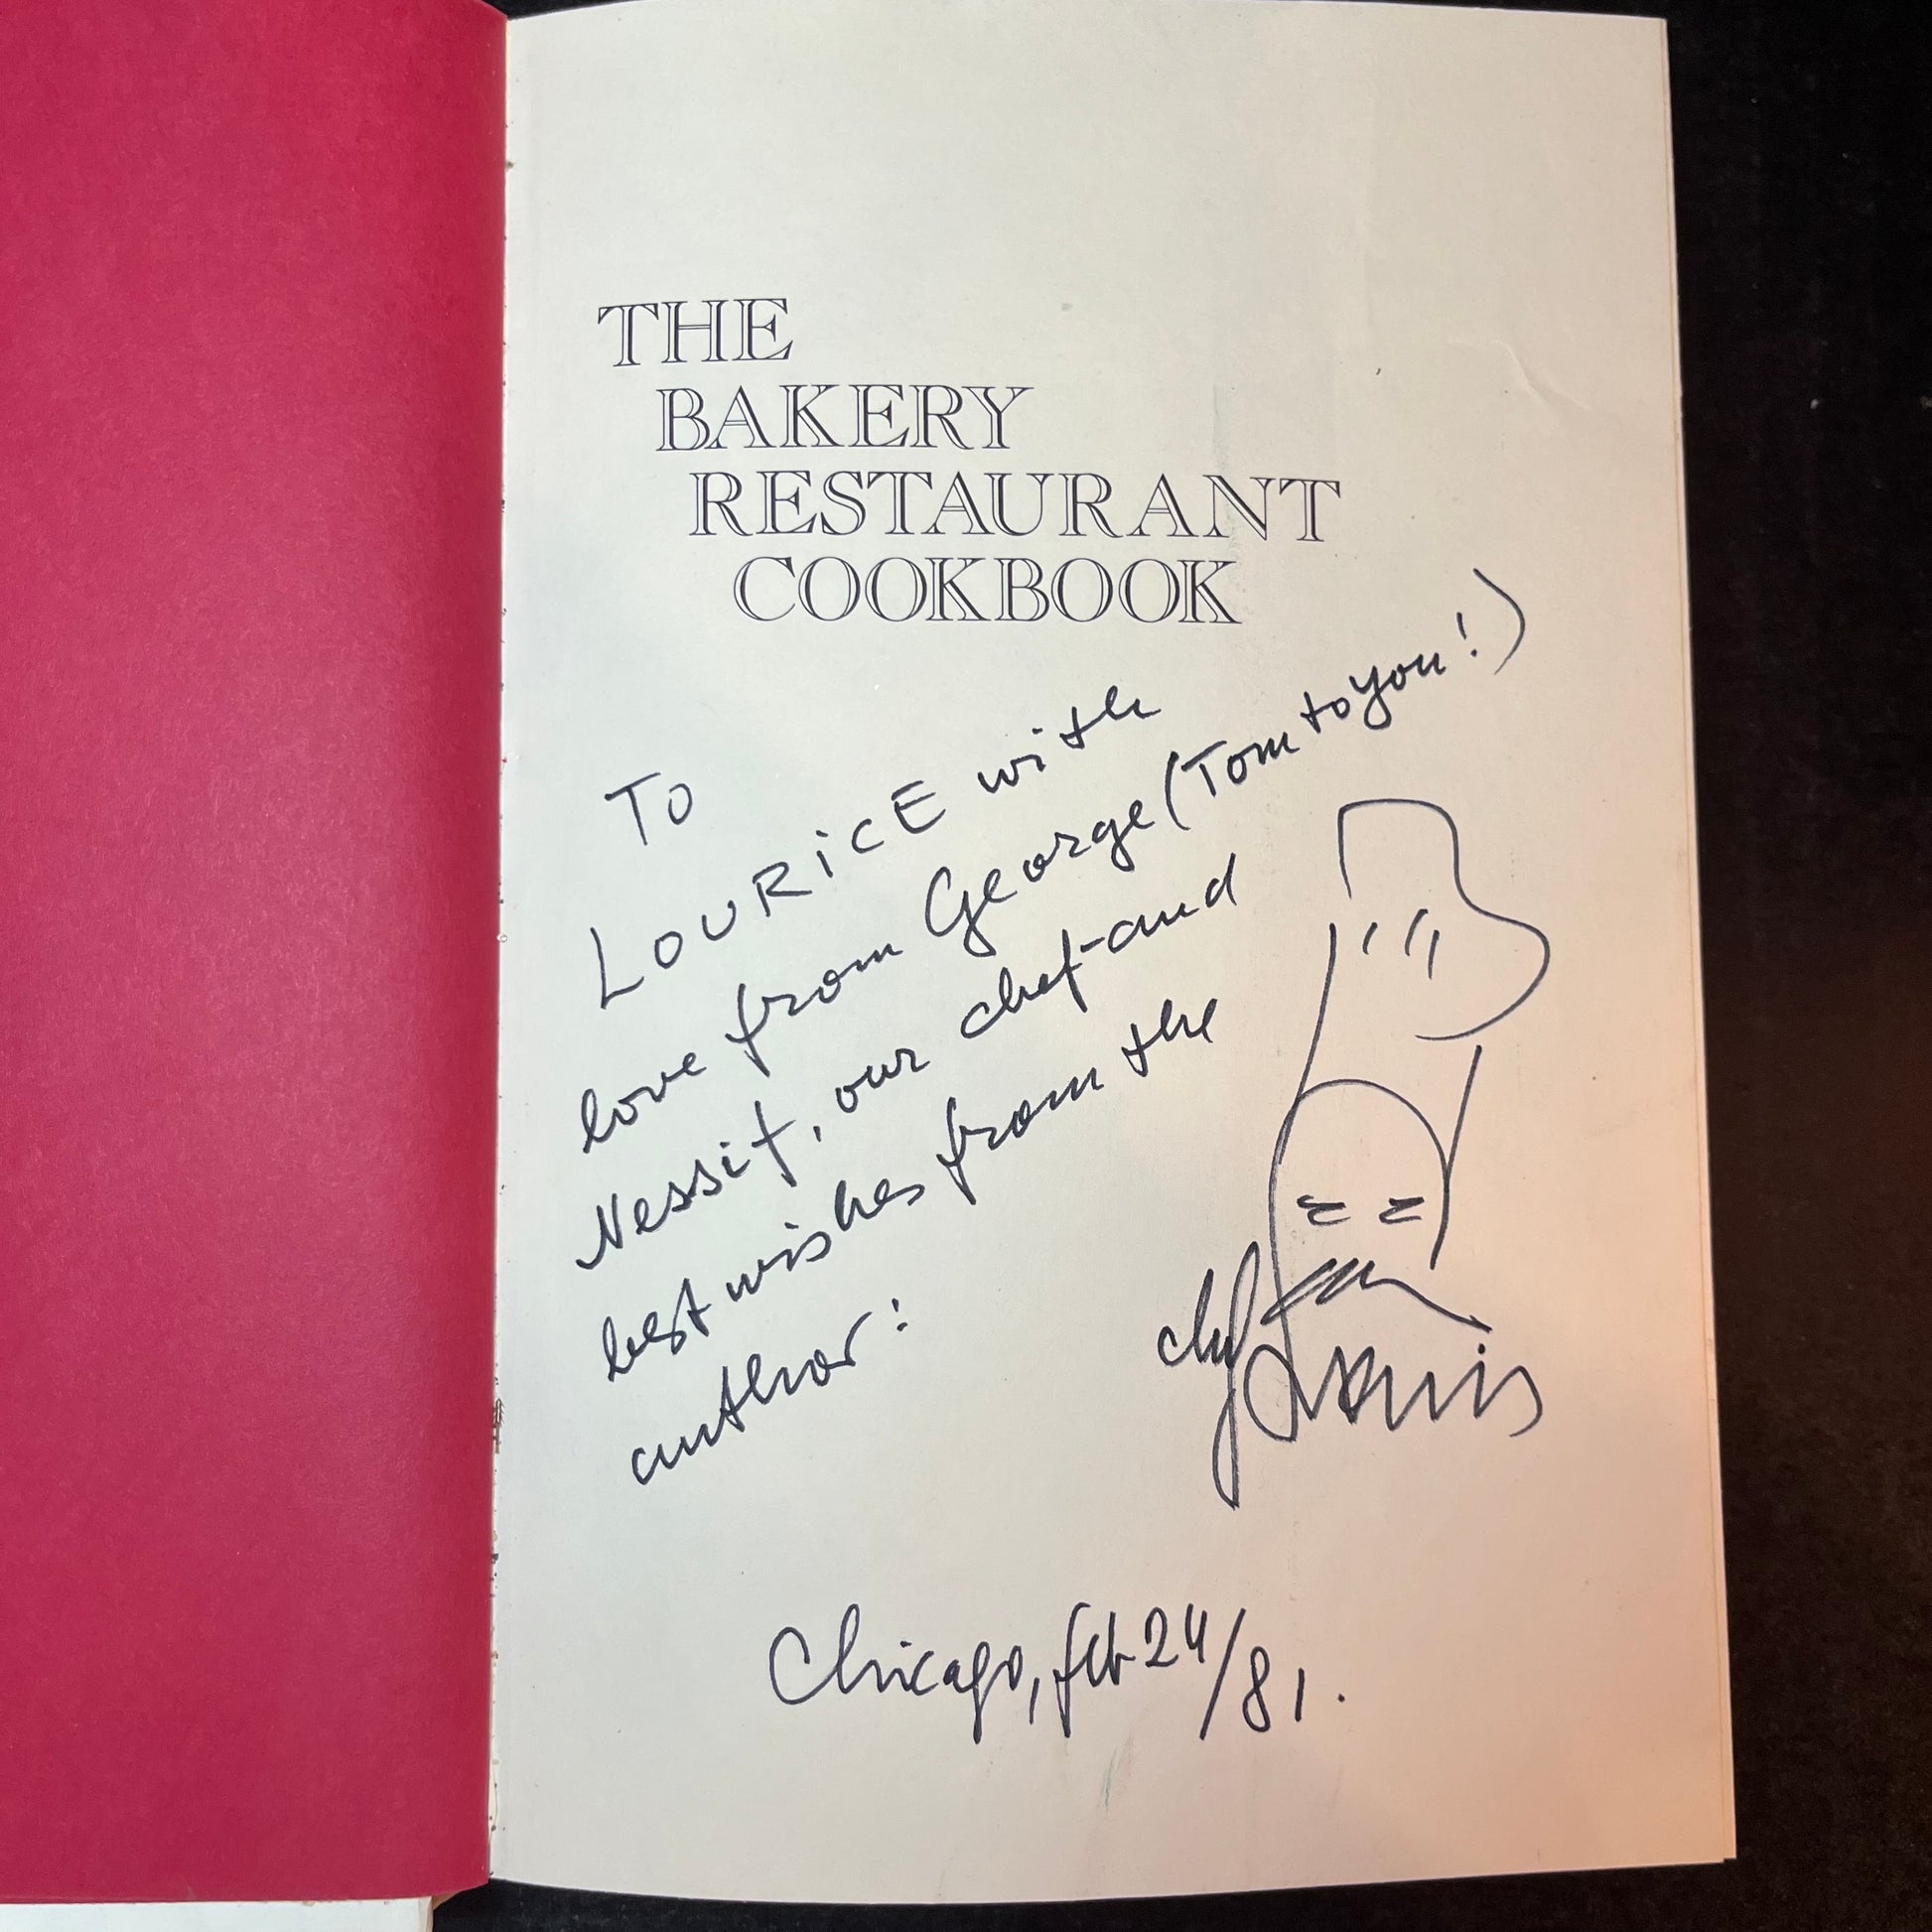 THE
BAKERY
RESTAURANT
COOKBOOK
To
LOURICE with
love from George (Tom to you!)
Nessif, our chef-and
best wishes from the
author:
chef Louis
Chicago, feb 24/81.